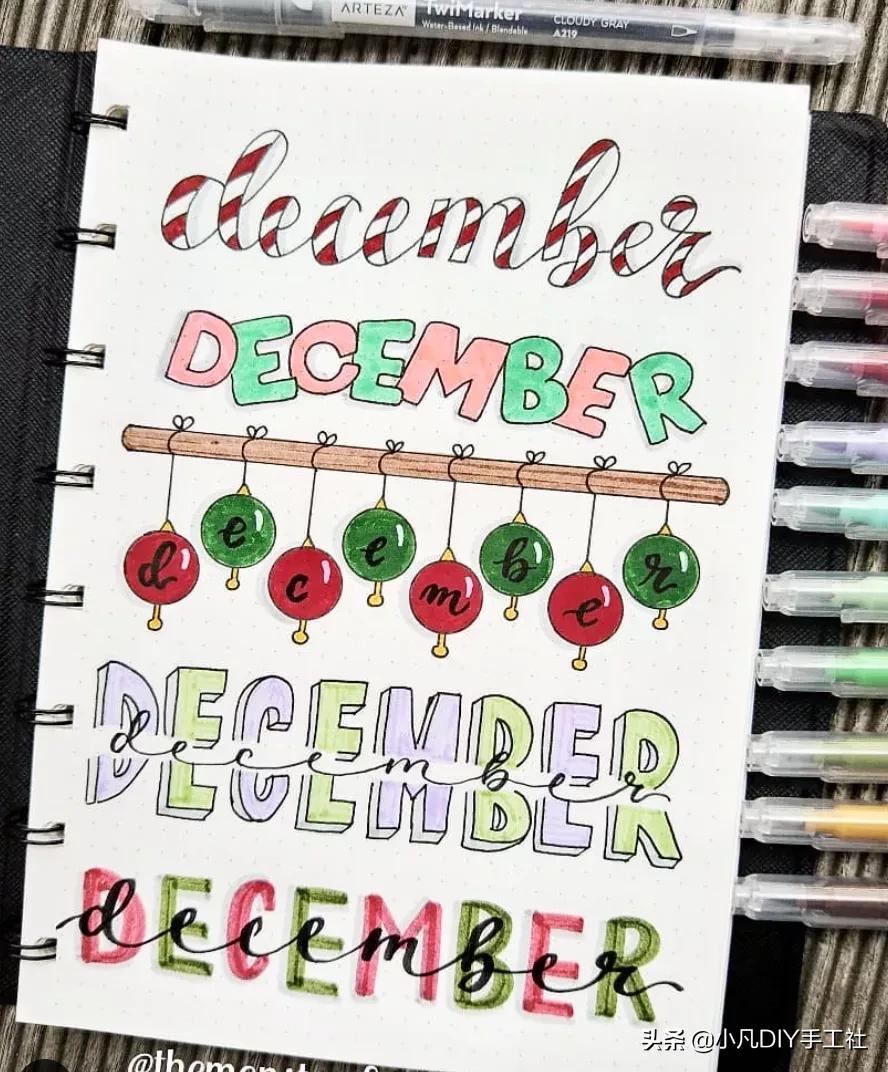 ARTEZA TwiMarker CLOUDY GRAY
Water-Based Ink / Blendable A219
december
DECEMBER
december
DECEMBER
december
DECEMBER
december
头条 @小凡DIY手工社